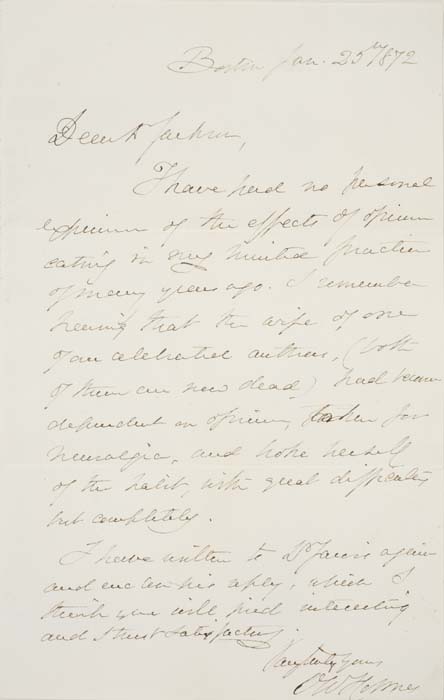 Boston Jan. 25th 1872
Dear Dr Jackson,
I have had no personal
experience of the effects of opium
eating in my limited practice
of many years ago. I remember
hearing that the wife of one
of our celebrated authors, (both
of them are now dead) had become
dependent on opium, taken for
neuralgia, and broke herself
of the habit, with great difficulty
but completely.
I have written to Dr Jarvis again
and enclose his reply, which I
think you will find interesting
and I trust satisfactory.
Very truly yours
O W Holmes